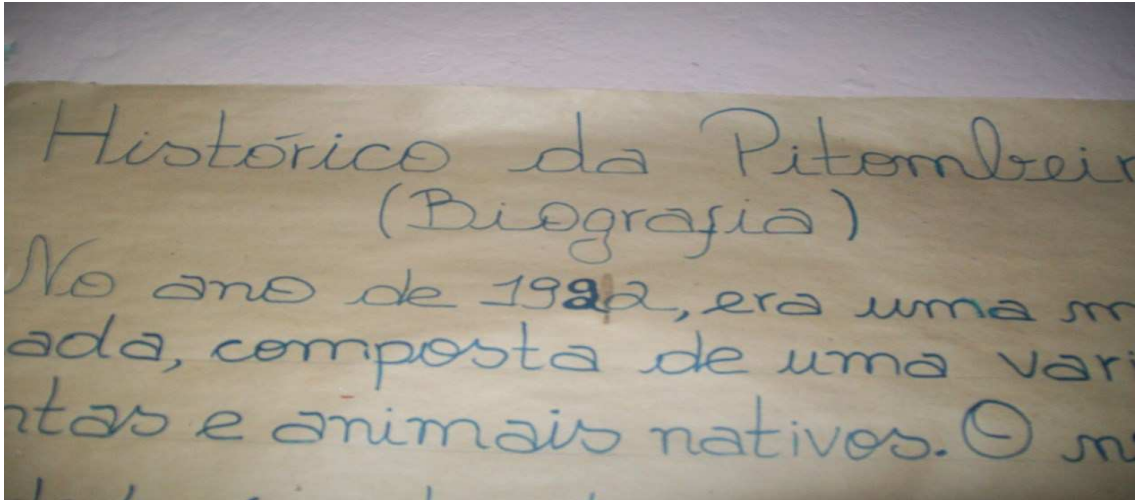 Histórico da Pitombeir
(Biografia)
No ano de 1922, era uma m
ada, composta de uma vari
ntas e animais nativos. O n